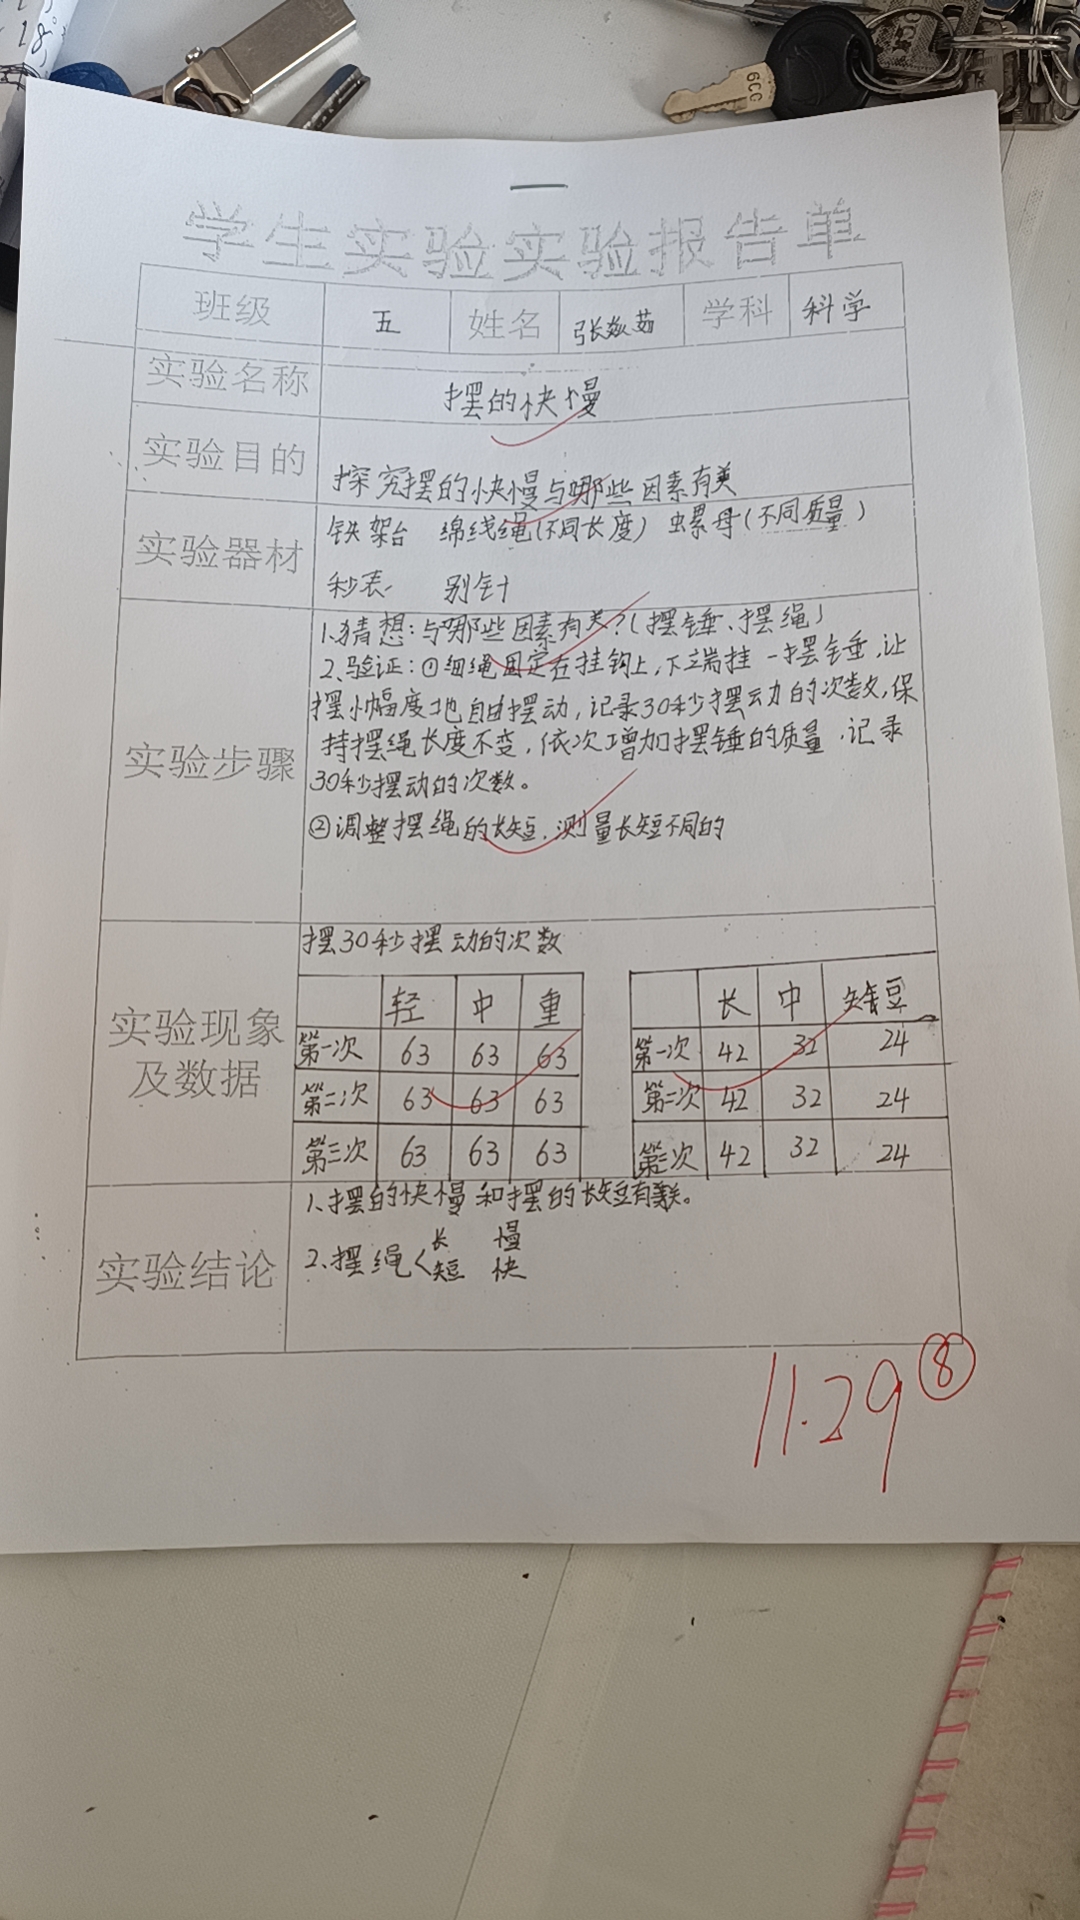 学生实验实验报告单
班级 五 姓名 张数茹 学科 科学
实验名称 摆的快慢
实验目的 探究摆的快慢与哪些因素有关
实验器材 铁架台 绵线绳(不同长度) 螺母(不同质量)
秒表 别针
实验步骤 1.猜想:与哪些因素有关?(摆锤、摆绳)
2.验证:①细绳固定在挂钩上,下端挂一摆锤,让
摆小幅度地自由摆动,记录30秒摆动的次数,保
持摆绳长度不变,依次增加摆锤的质量,记录
30秒摆动的次数。
②调整摆绳的长短,测量长短不同的
实验现象及数据 摆30秒摆动的次数
轻 中 重
第一次 63 63 63
第二次 63 63 63
第三次 63 63 63
长 中 短
第一次 42 32 24
第二次 42 32 24
第三次 42 32 24
实验结论 1、摆的快慢和摆的长短有关。
2、摆绳〈长 慢
短 快
11.29 ⑧
600
18